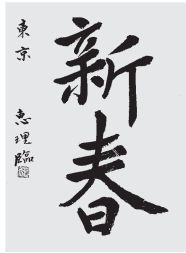 新春
東京 恵理臨